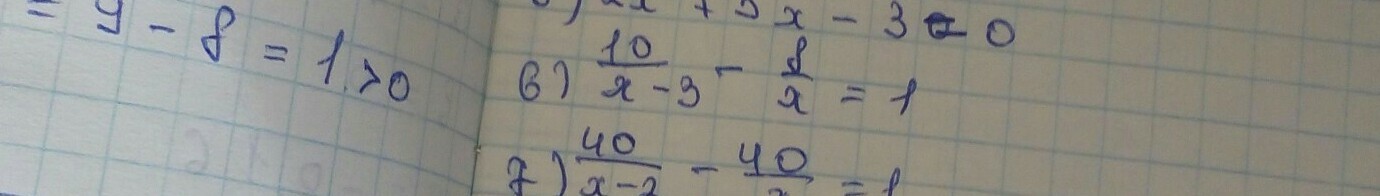 = 9 - 8 = 1 > 0
x - 3 = 0
6) 10/(x-3) - 8/x = 1
7) 40/(x-2) - 40/x = 1